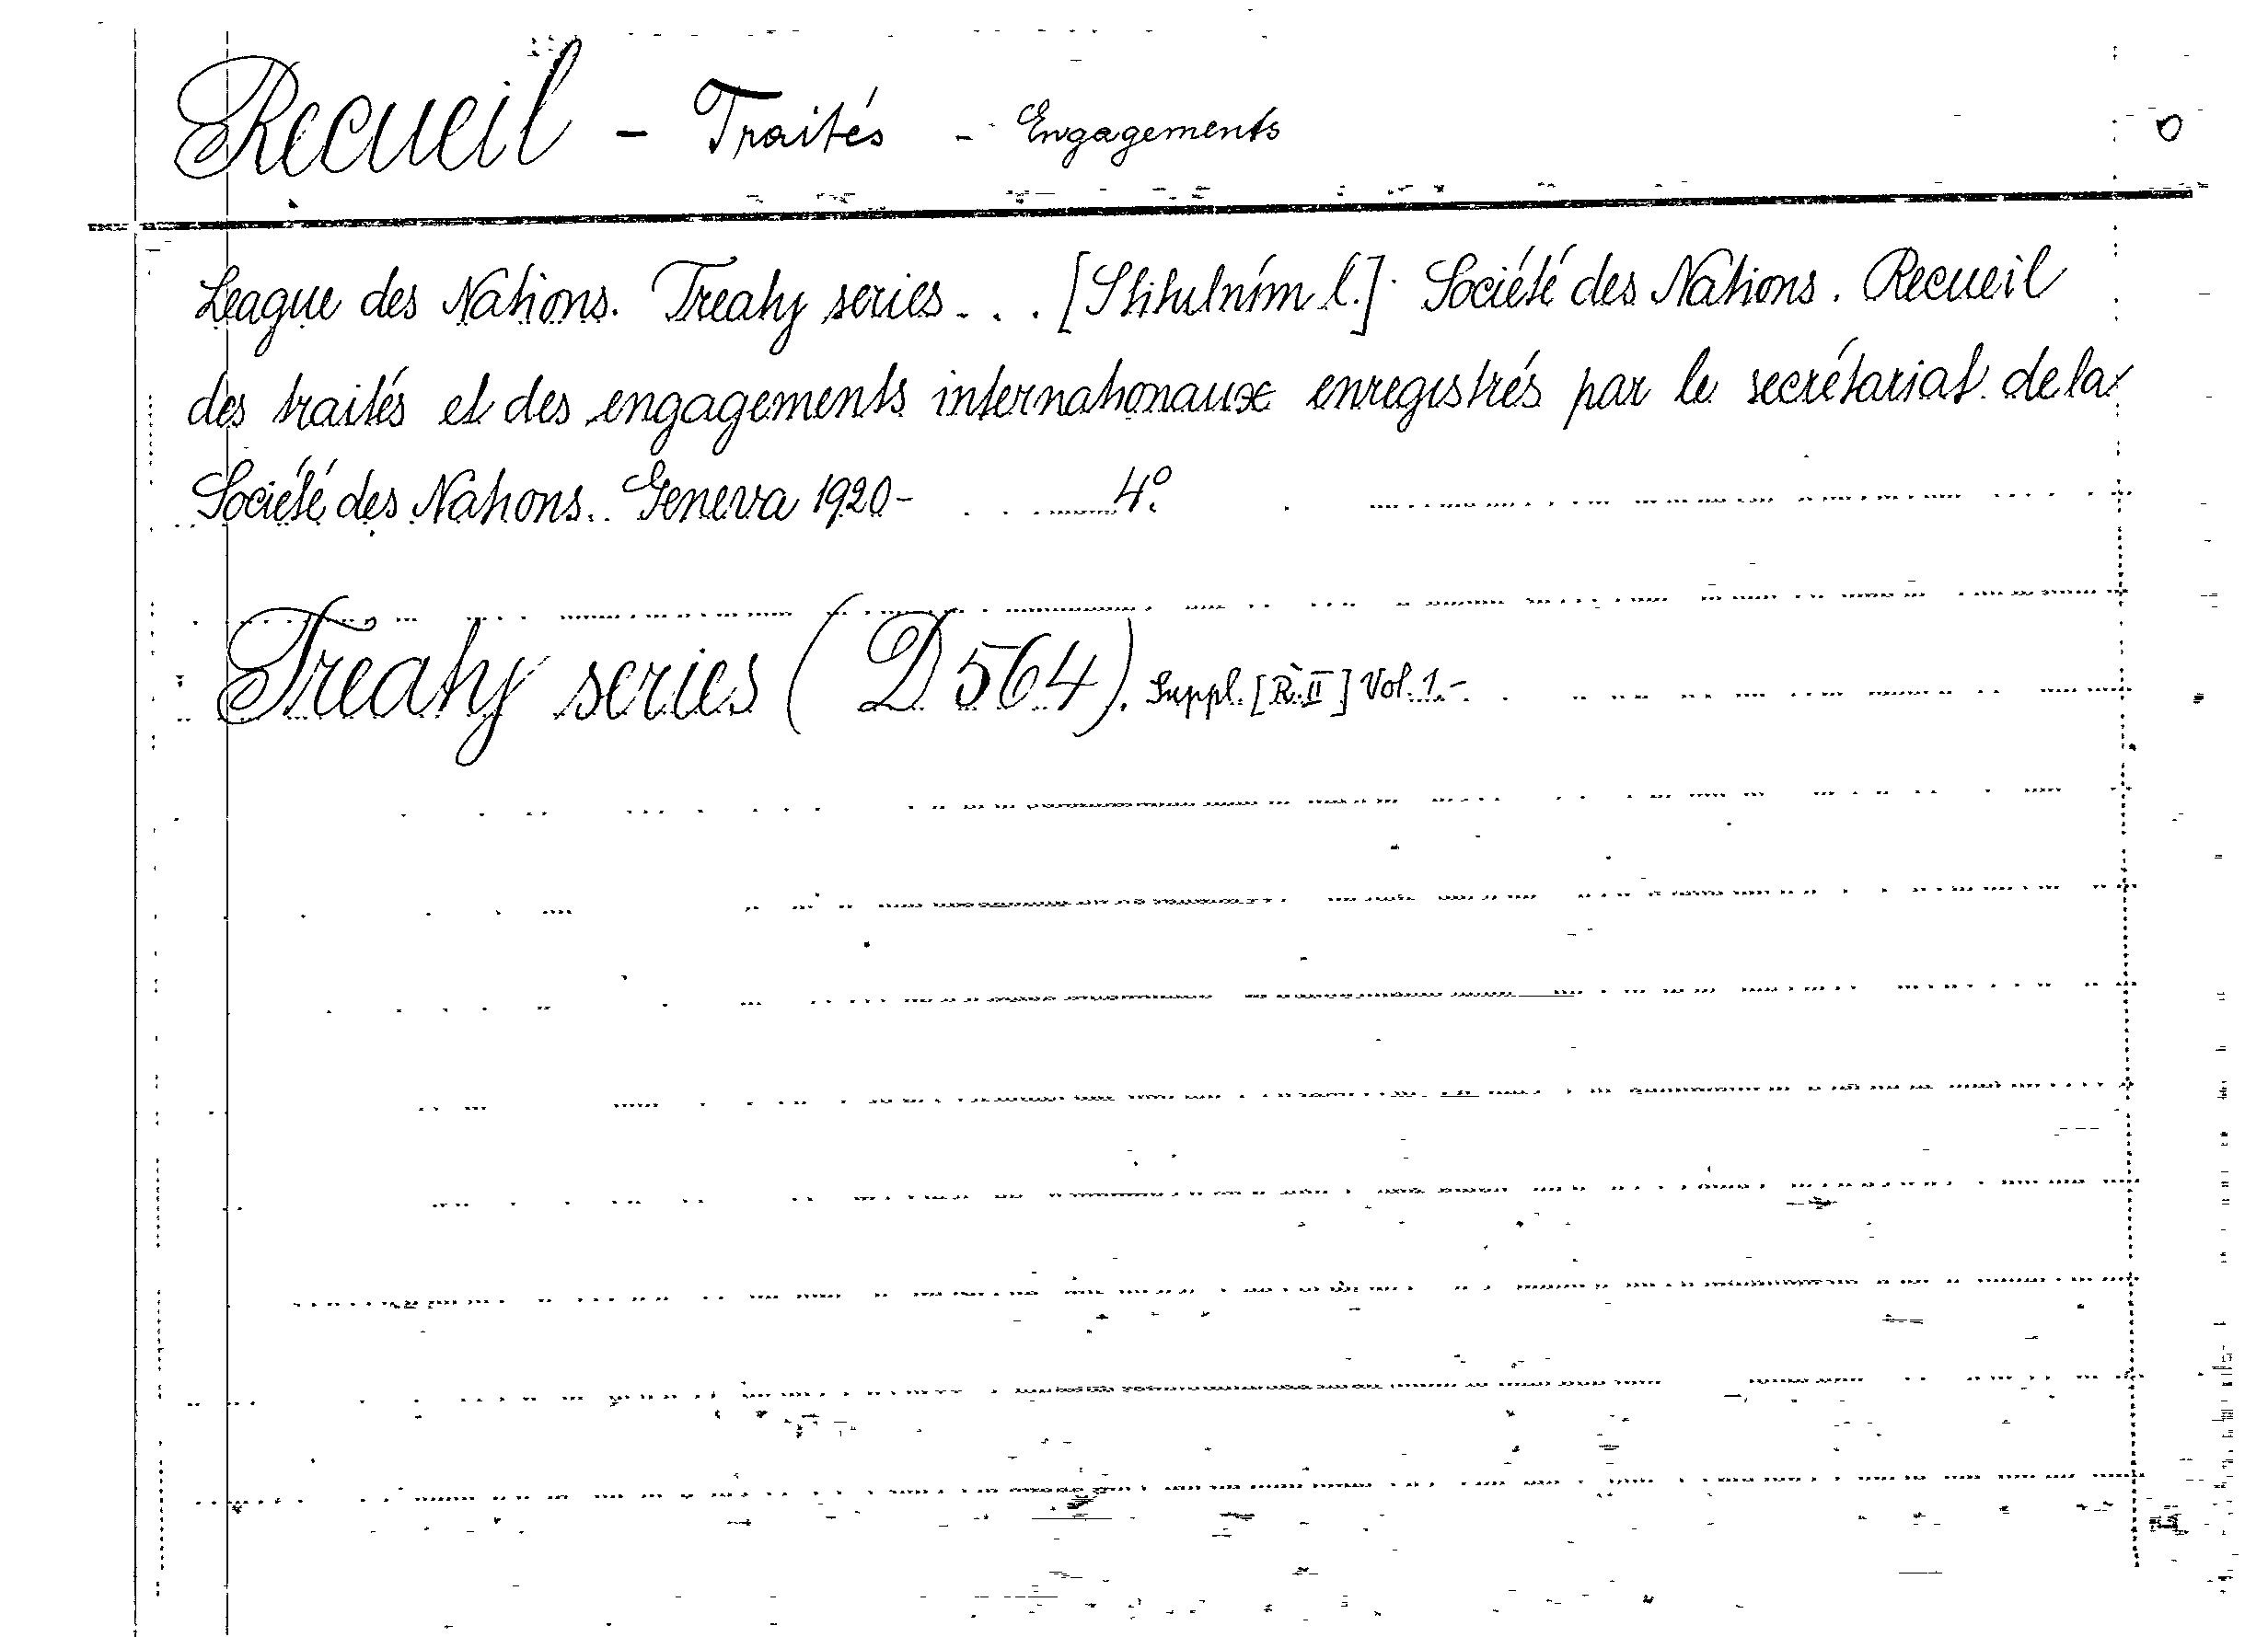 Recueil - Traités - Engagements O
League des Nations. Treaty series... [S titulním l.] Société des Nations. Recueil
des traités et des engagements internationaux enregistrés par le secrétariat de la
Société des Nations. Geneva 1920- 4°.
Treaty series (D 564). Suppl. [Ř. II] Vol. 1.-